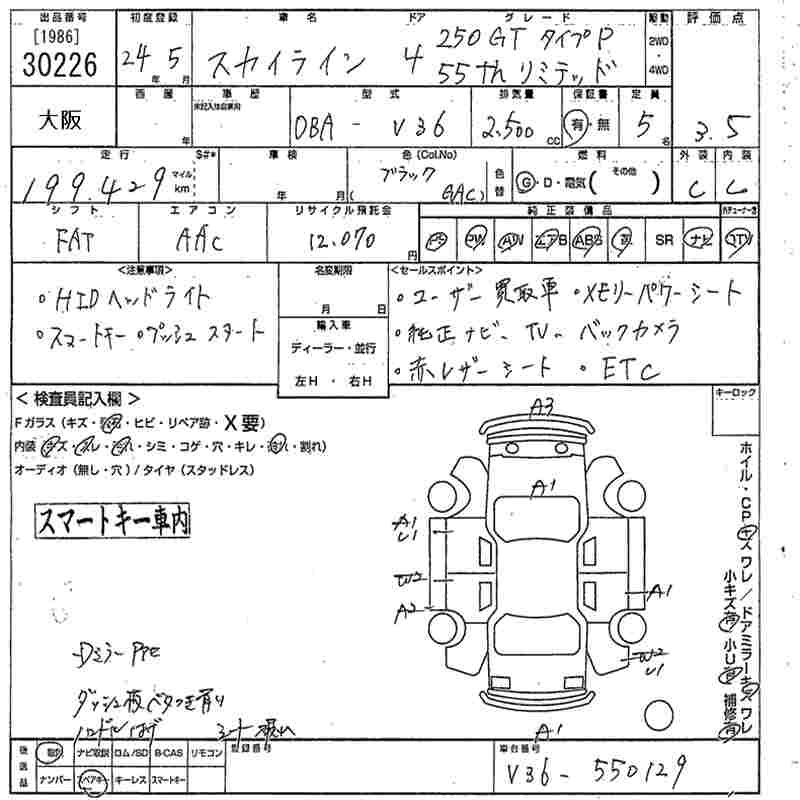 出品番号 初度登録 車名 ドア グレード 駆動 評価点
[1986]
30226
24年 5月 スカイライン 4 250GT タイプP
55th リミテッド
2WD・4WD
3.5
大阪
西暦 年 車歴 未記入は自家用 型式 排気量 保証書 定員
DBA - V36 2,500cc 有・無 5名
走行 S#* 車検 色(Col.No) 色替 燃料 外装 内装
199,429 マイル km 年 月 ブラック (GAC) G・D・電気( その他 ) C C
シフト エアコン リサイクル預託金 純正装備品
FAT AAC 12,070円 PS PW AW エアB ABS 革 SR ナビ TV
<注意事項>
・HIDヘッドライト
・スマートキー・プッシュスタート
名変期限 月 日
輸入車
ディーラー・並行
左H・右H
<セールスポイント>
・ユーザー買取車 ・メモリーパワーシート
・純正ナビ、TV、バックカメラ
・赤レザーシート ・ETC
<検査員記入欄>
キーロック
Fガラス(キズ・・ヒビ・リペア跡・X要)
内装・・・シミ・コゲ・穴・キレ・・割れ)
オーディオ(無し・穴)/タイヤ(スタッドレス)
スマートキー車内
A3
A1
A1
U1
W2
A2
A1
W2
U1
A1
ホイル・CP キズ ワレ/ドアミラー キズ ワレ
小キズ 有 小U 有 補修 有
Dミラー
ダッシュ板ベタつき有り
後送品 取説 ナビ取説 ロム/SD B-CAS リモコン 登録番号 車台番号
ナンバー スペアキー キーレス スマートキー
V36-550129